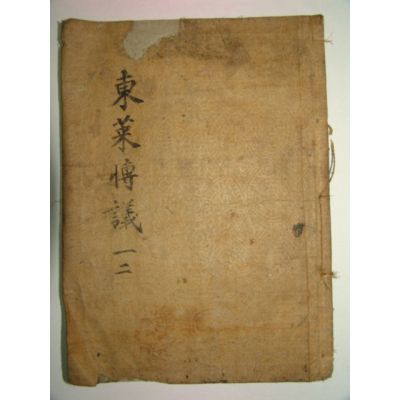 東萊愽議 一二